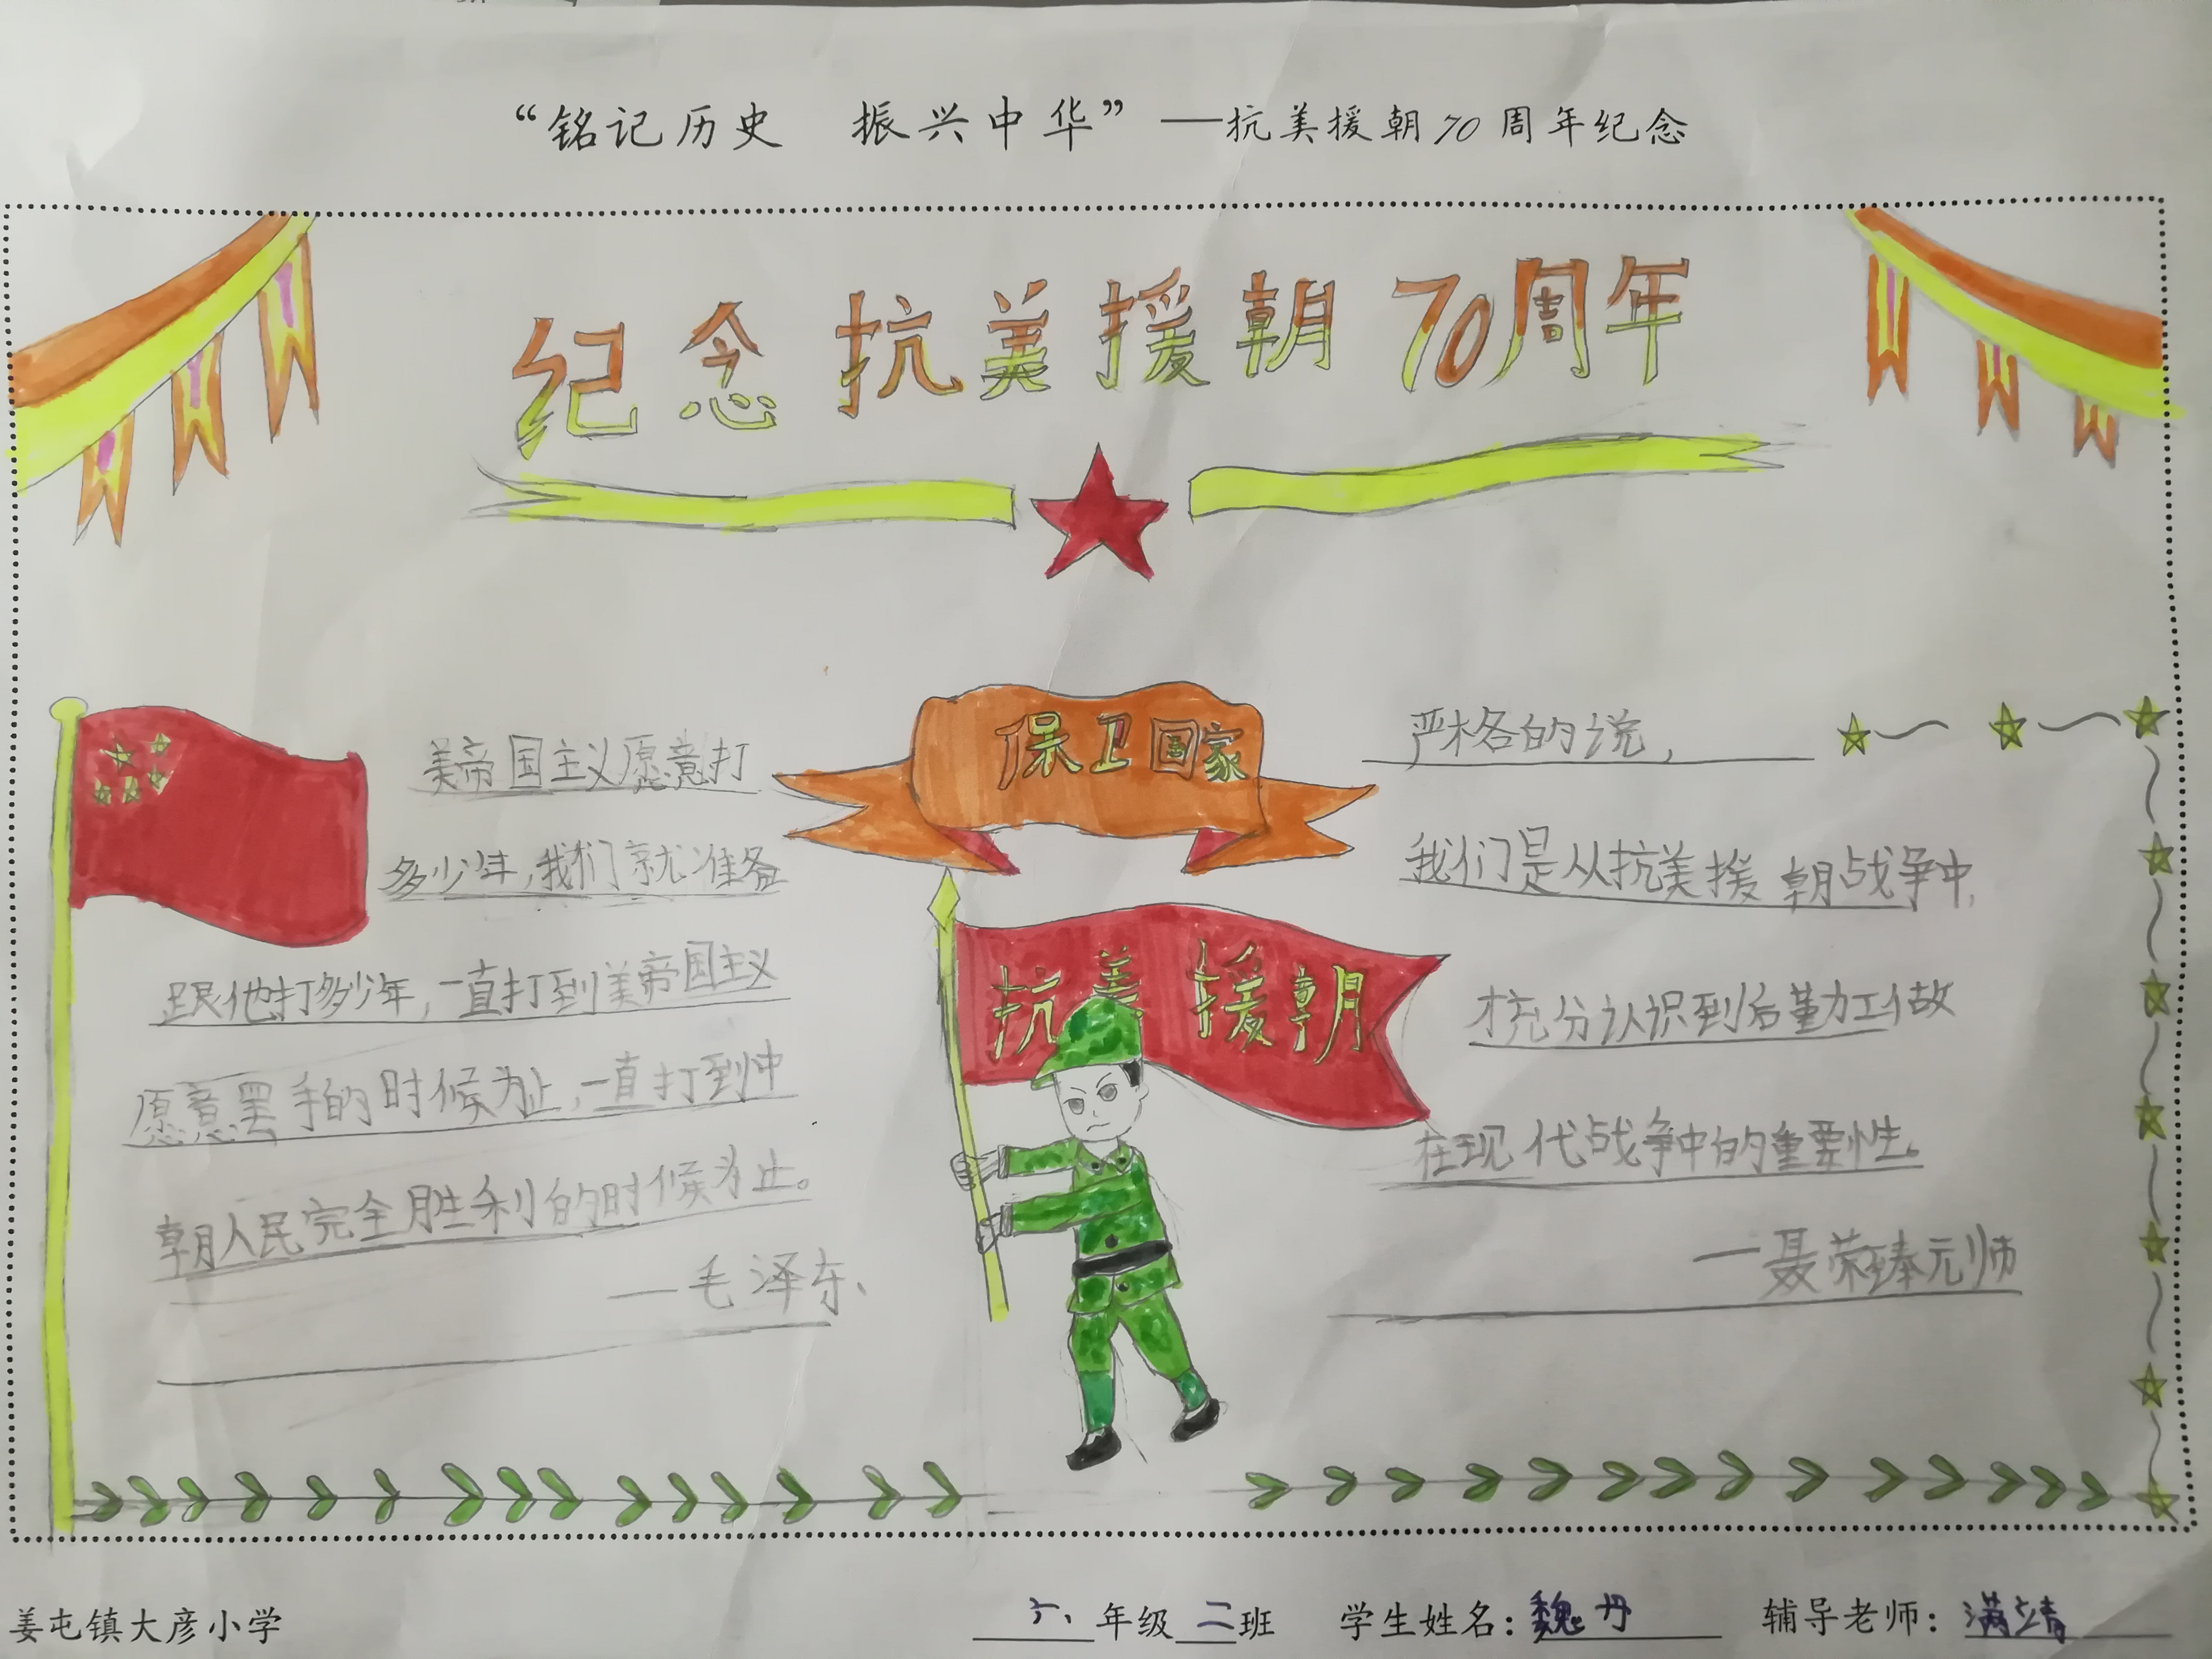 “铭记历史　振兴中华”——抗美援朝70周年纪念
纪念抗美援朝70周年
保卫国家
抗美援朝
美帝国主义愿意打
多少年,我们就准备
跟他打多少年,一直打到美帝国主义
愿意罢手的时候为止,一直打到中
朝人民完全胜利的时候为止。
—毛泽东
严格的说,
我们是从抗美援朝战争中,
才充分认识到后勤工做
在现代战争中的重要性。
—聂荣臻元帅
姜屯镇大彦小学
六、年级二班 学生姓名:魏丹 辅导老师:满靖